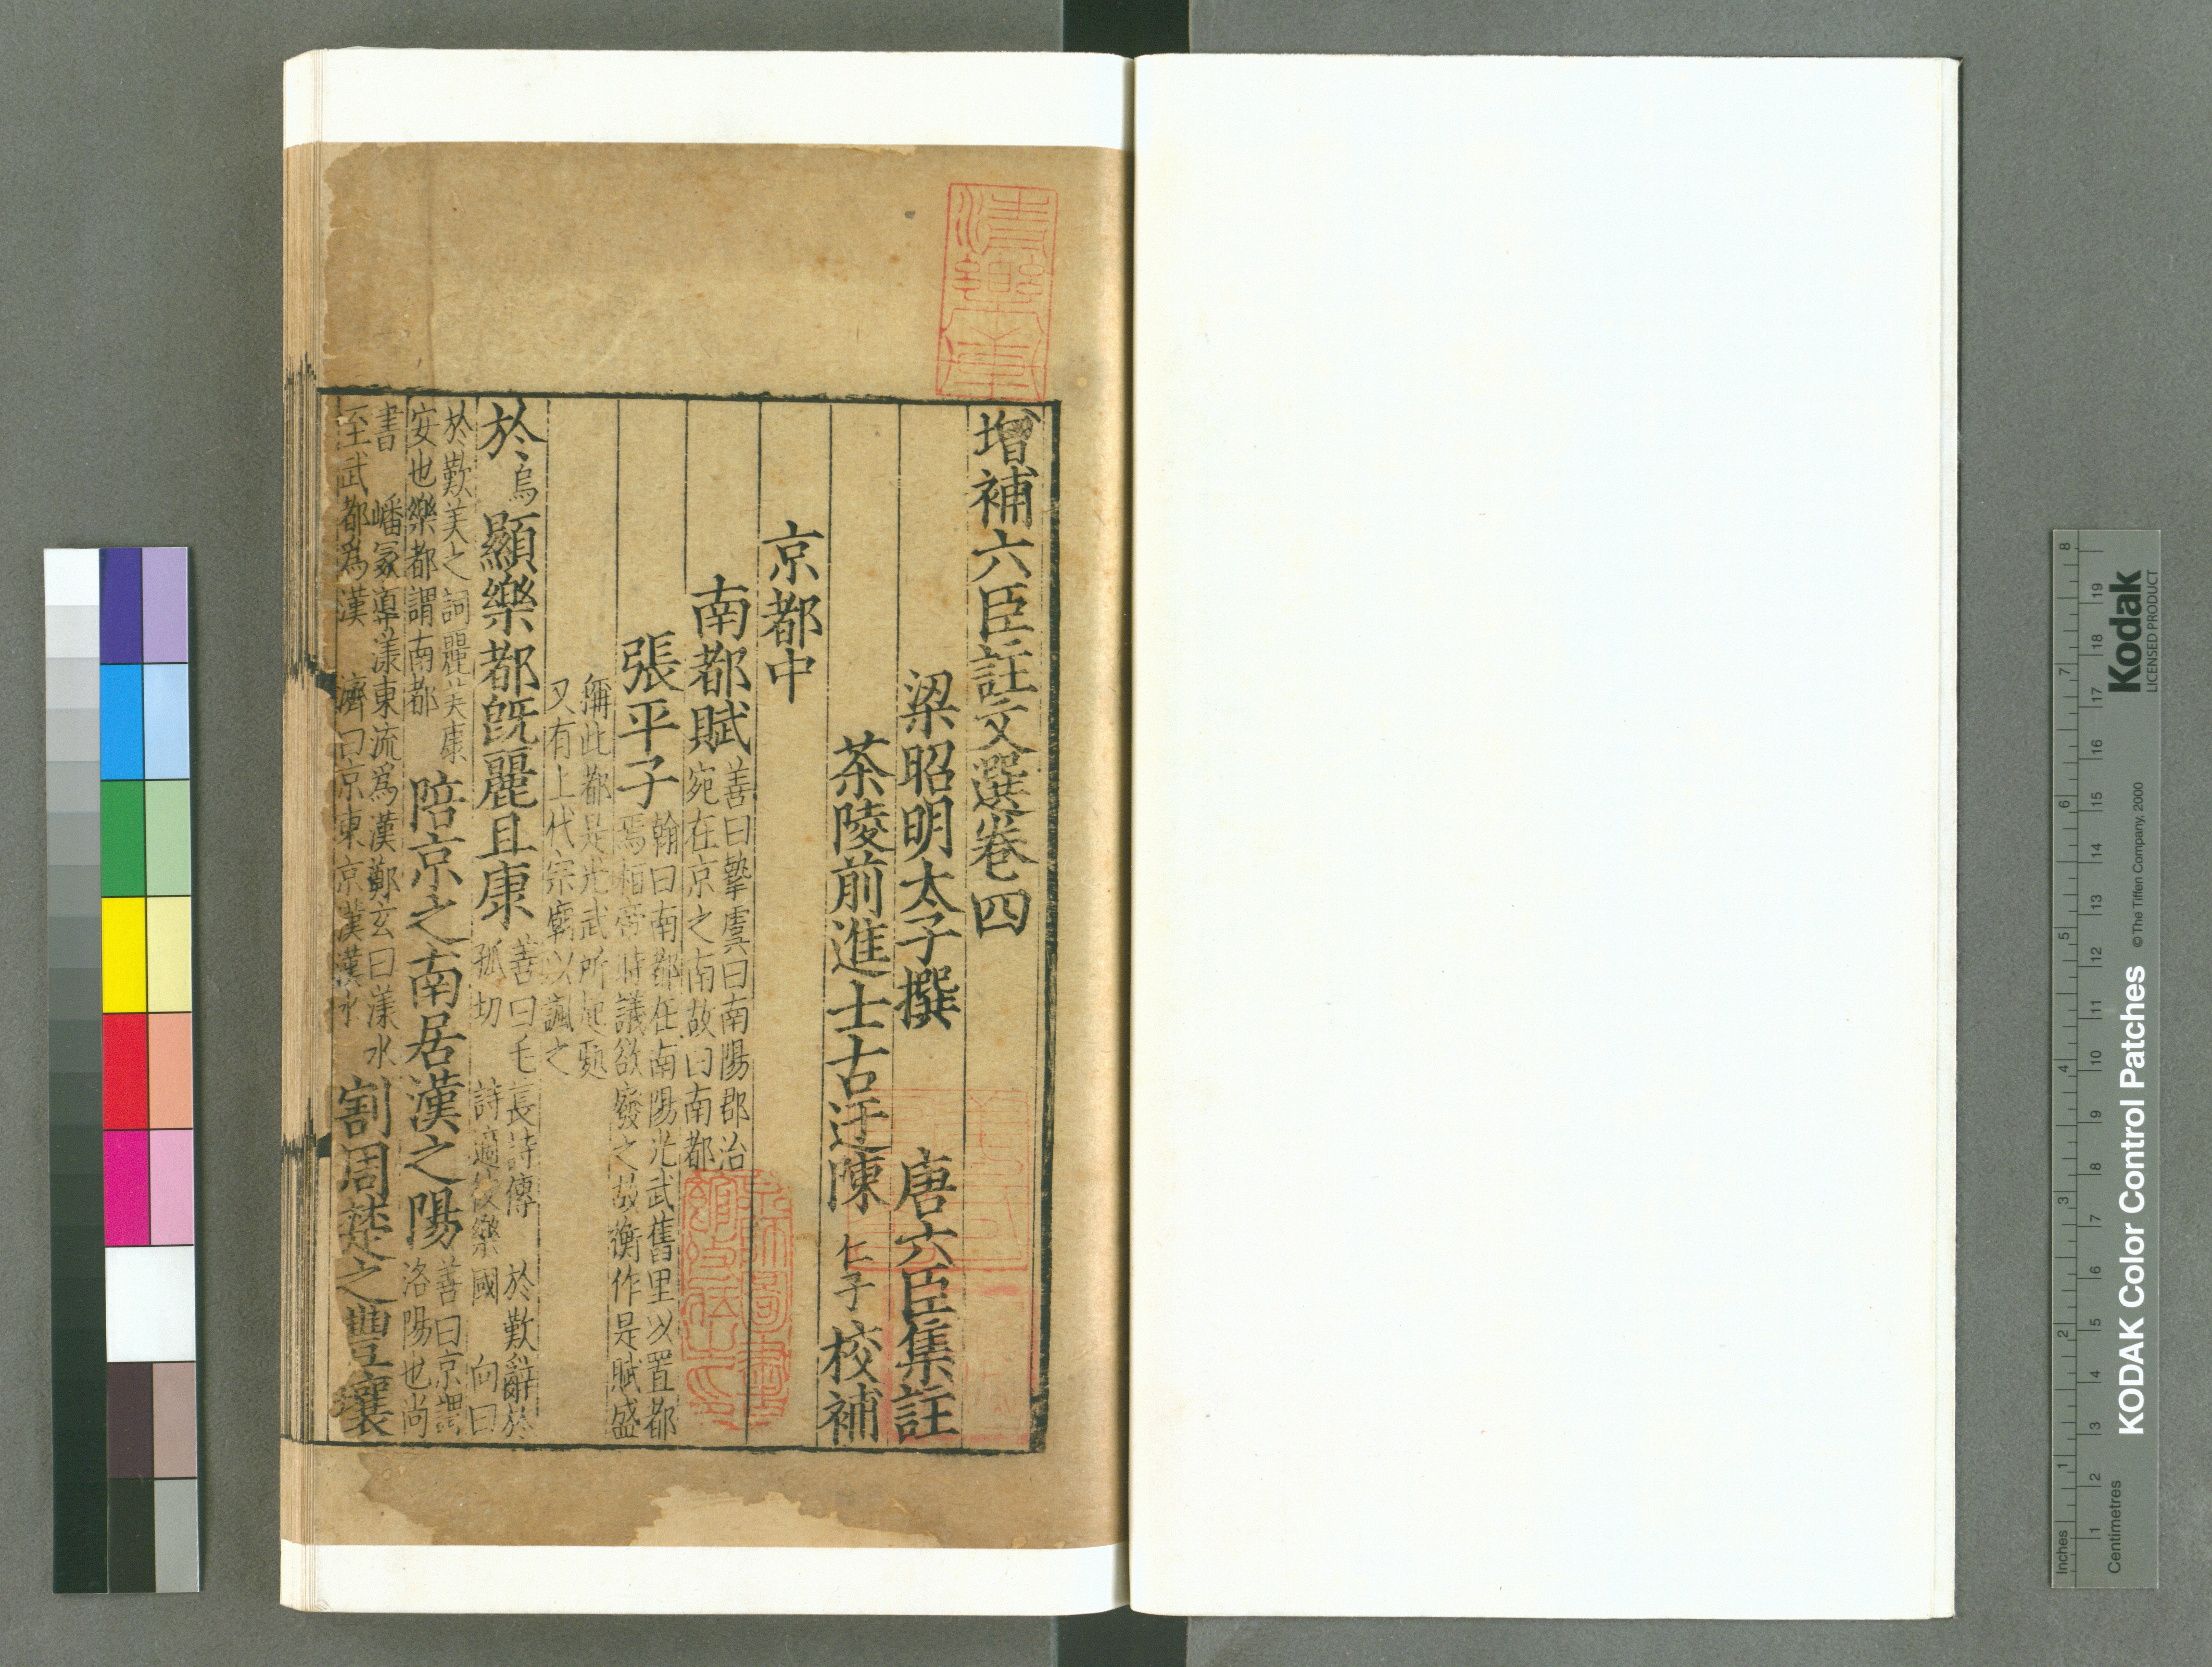 增補六臣註文選卷四
梁昭明太子撰 唐六臣集註
茶陵前進士古迂陳 仁子 校補
京都中
南都賦 善曰摯虞曰南陽郡治
宛在京之南故曰南都
張平子 翰曰南都在南陽光武舊里以置都
焉桓帝時議欲廢之故衡作是賦盛
稱此都是光武所起處
又有上代宗廟以諷之
於烏顯樂都旣麗且康 善曰毛萇詩傳 於歎辭於
孤切 詩適彼樂國 向曰
於歎美之詞麗美康
安也樂都謂南都 陪京之南居漢之陽 善曰京謂
洛陽也尚
書 嶓冢導漾東流爲漢鄭玄曰漾水
至武都爲漢 濟曰京東京漢漢水 割周楚之豐壤
清樂軒
KODAK Color Control Patches
Kodak
LICENSED PRODUCT
© The Tiffen Company, 2000
Inches 1 2 3 4 5 6 7 8
Centimetres 1 2 3 4 5 6 7 8 9 10 11 12 13 14 15 16 17 18 19